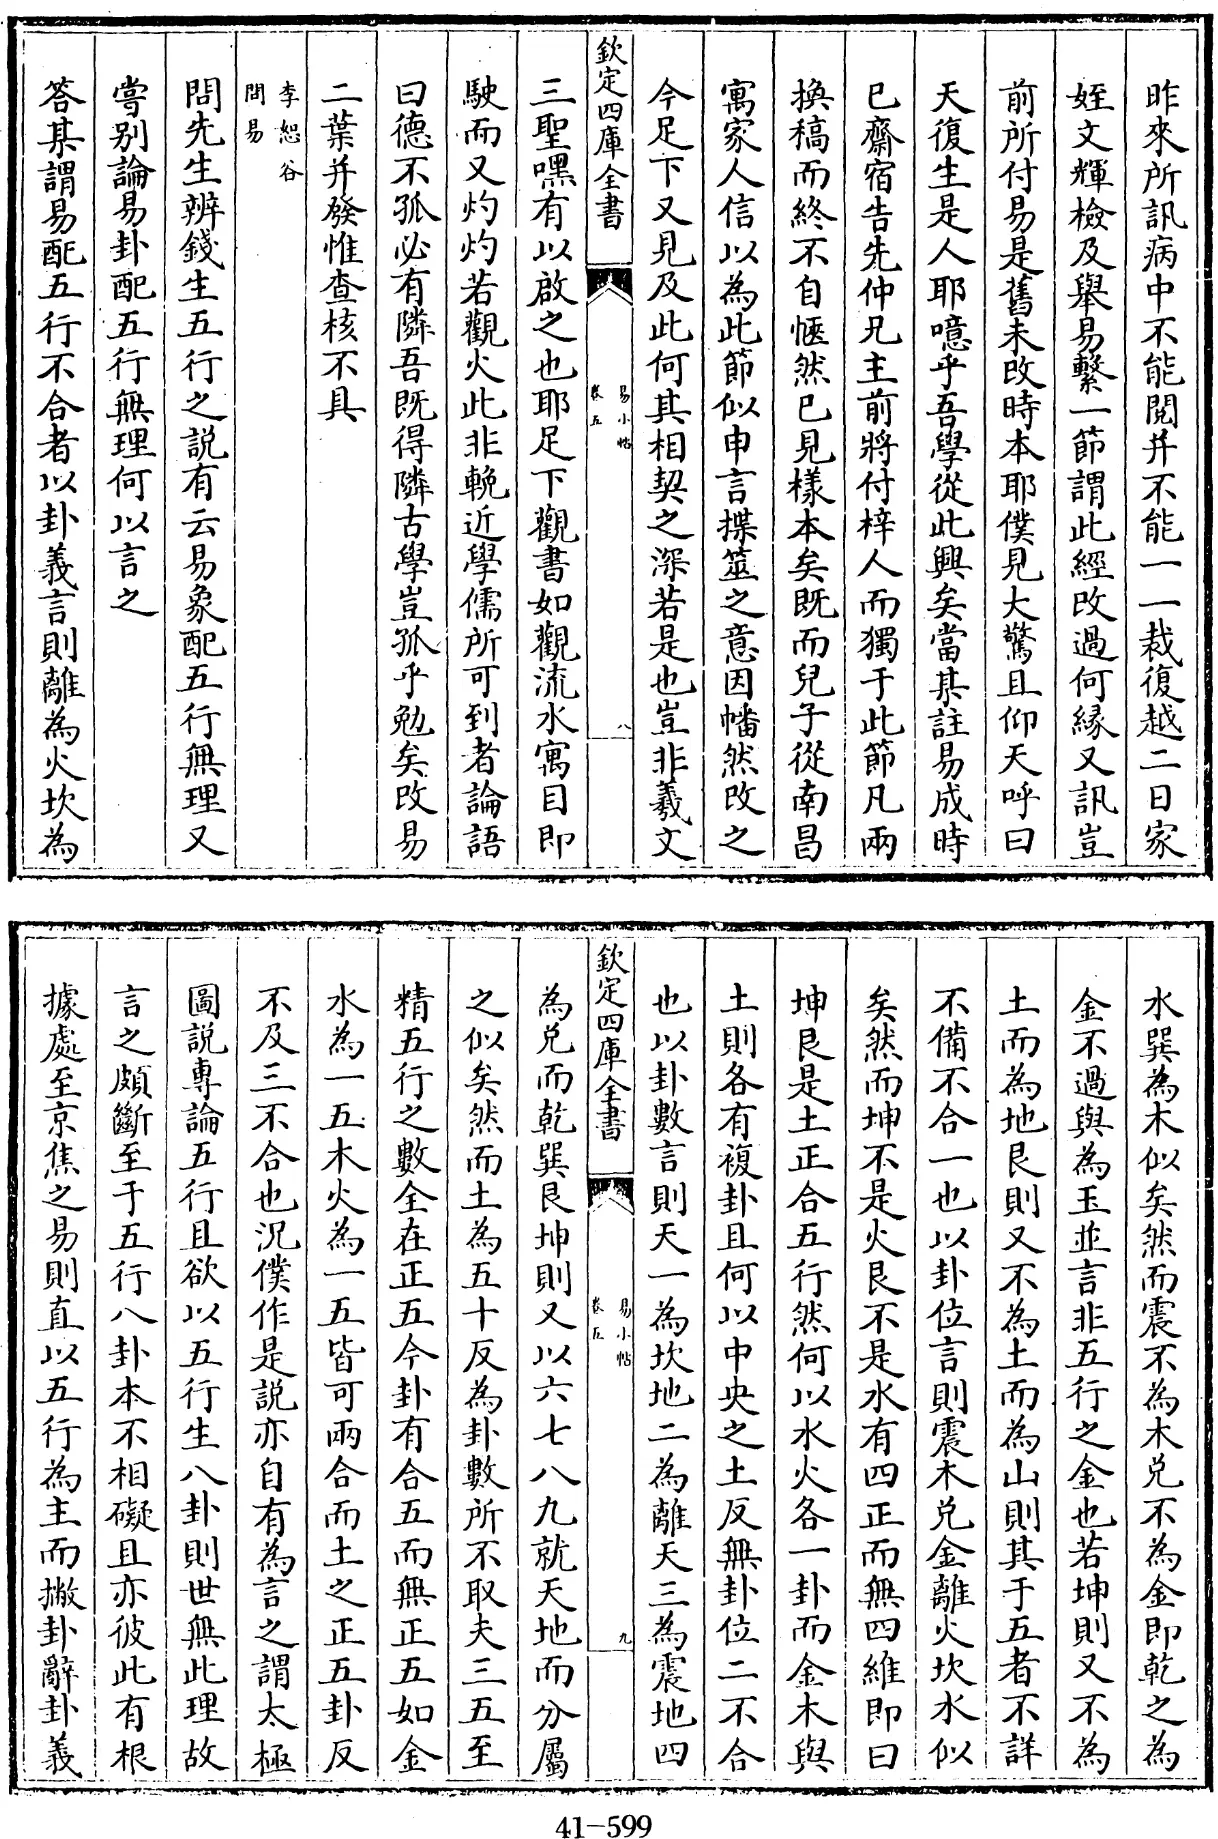 昨來所訊病中不能閱并不能一一裁復越二日家
姪文輝檢及舉易繫一節謂此經改過何緣又訊豈
前所付易是舊未改時本耶僕見大驚且仰天呼曰
天復生是人耶噫乎吾學從此興矣當某註易成時
已齋宿告先仲兄主前將付梓人而獨于此節凡兩
換稿而終不自愜然已見樣本矣既而兒子從南昌
寓家人信以為此節似申言揲筮之意因幡然改之
今足下又見及此何其相契之深若是也豈非羲文
欽定四庫全書
易小帖
卷五
八
三聖嘿有以啟之也耶足下觀書如觀流水寓目即
駛而又灼灼若觀火此非輓近學儒所可到者論語
曰德不孤必有隣吾既得隣古學豈孤乎勉矣改易
二葉并發惟查核不具
李恕谷
問易
問先生辨錢生五行之說有云易象配五行無理又
嘗別論易卦配五行無理何以言之
答某謂易配五行不合者以卦義言則離為火坎為
水巽為木似矣然而震不為木兌不為金即乾之為
金不過與為玉並言非五行之金也若坤則又不為
土而為地艮則又不為土而為山則其于五者不詳
不備不合一也以卦位言則震木兌金離火坎水似
矣然而坤不是火艮不是水有四正而無四維即曰
坤艮是土正合五行然何以水火各一卦而金木與
土則各有複卦且何以中央之土反無卦位二不合
也以卦數言則天一為坎地二為離天三為震地四
欽定四庫全書
易小帖
卷五
九
為兌而乾巽艮坤則又以六七八九就天地而分屬
之似矣然而土為五十反為卦數所不取夫三五至
精五行之數全在正五今卦有合五而無正五如金
水為一五木火為一五皆可兩合而土之正五卦反
不及三不合也況僕作是說亦自有為言之謂太極
圖說專論五行且欲以五行生八卦則世無此理故
言之頗斷至于五行八卦本不相礙且亦彼此有根
據處至京焦之易則直以五行為主而撇卦辭卦義
41-599